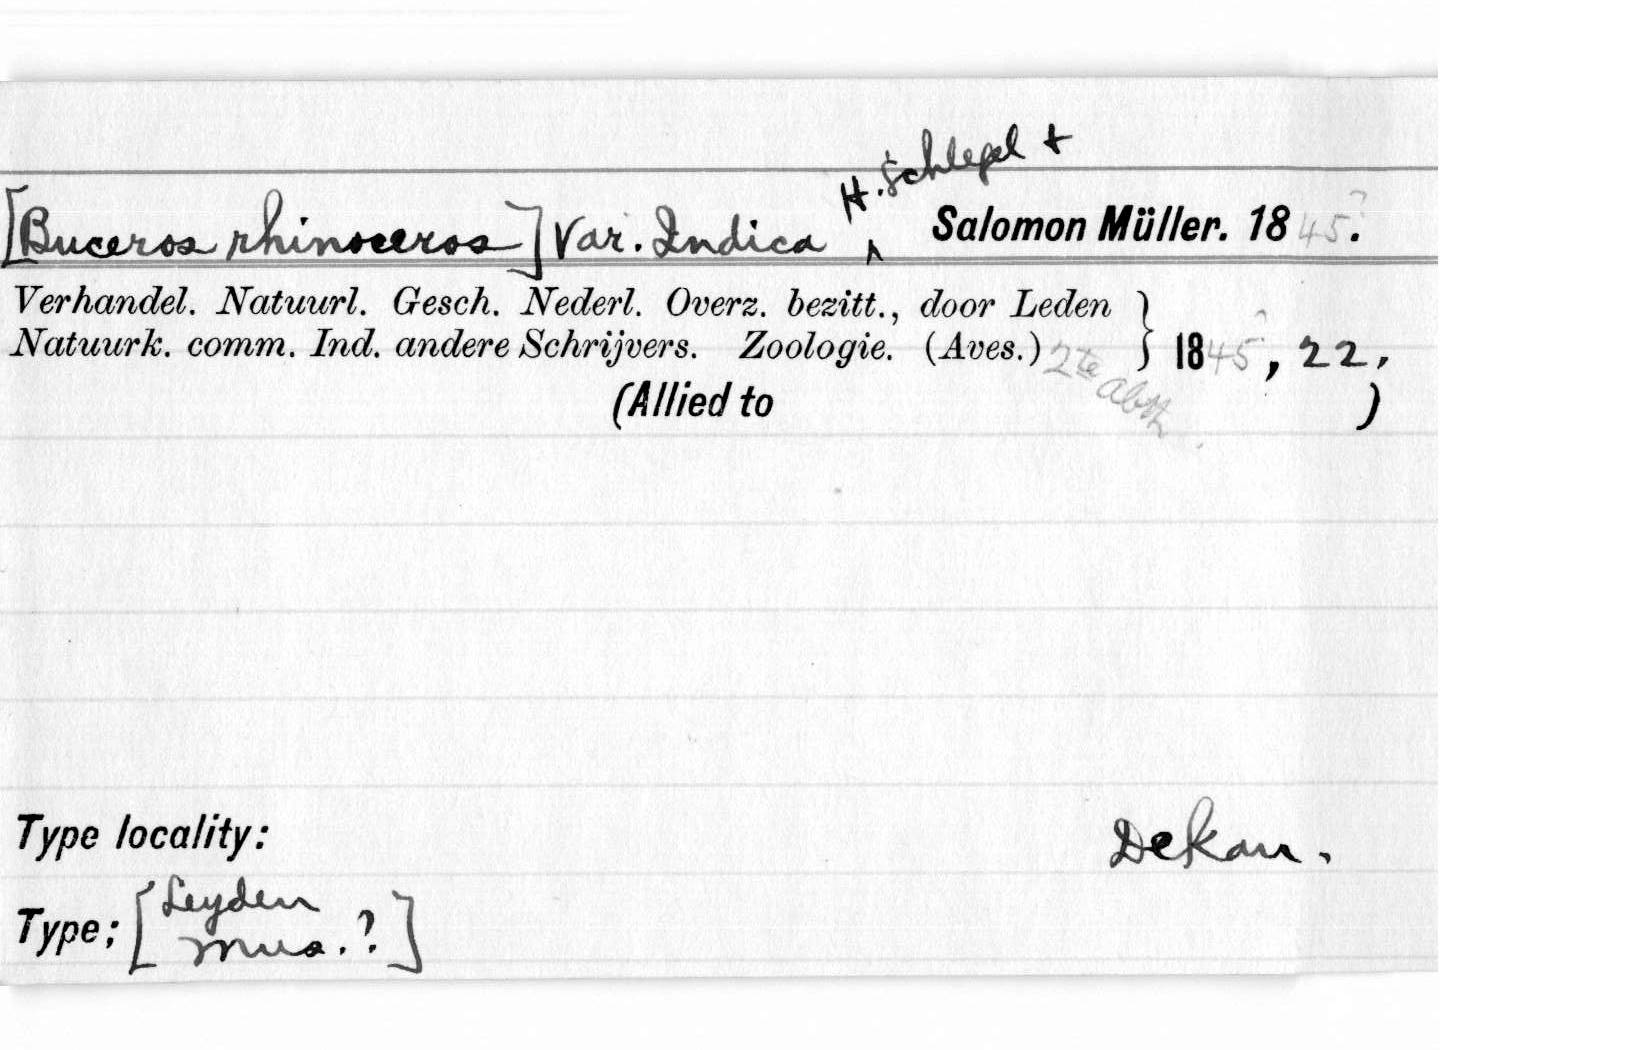 H. Schlegel +
[Buceros rhinoceros] Var. Indica ^ Salomon Müller. 1845?.
Verhandel. Natuurl. Gesch. Nederl. Overz. bezitt., door Leden
Natuurk. comm. Ind. andere Schrijvers. Zoologie. (Aves.) 2te Abth. } 1845, 22,
(Allied to )
Type locality: Dekan.
Type; [Leyden
Mus.?]